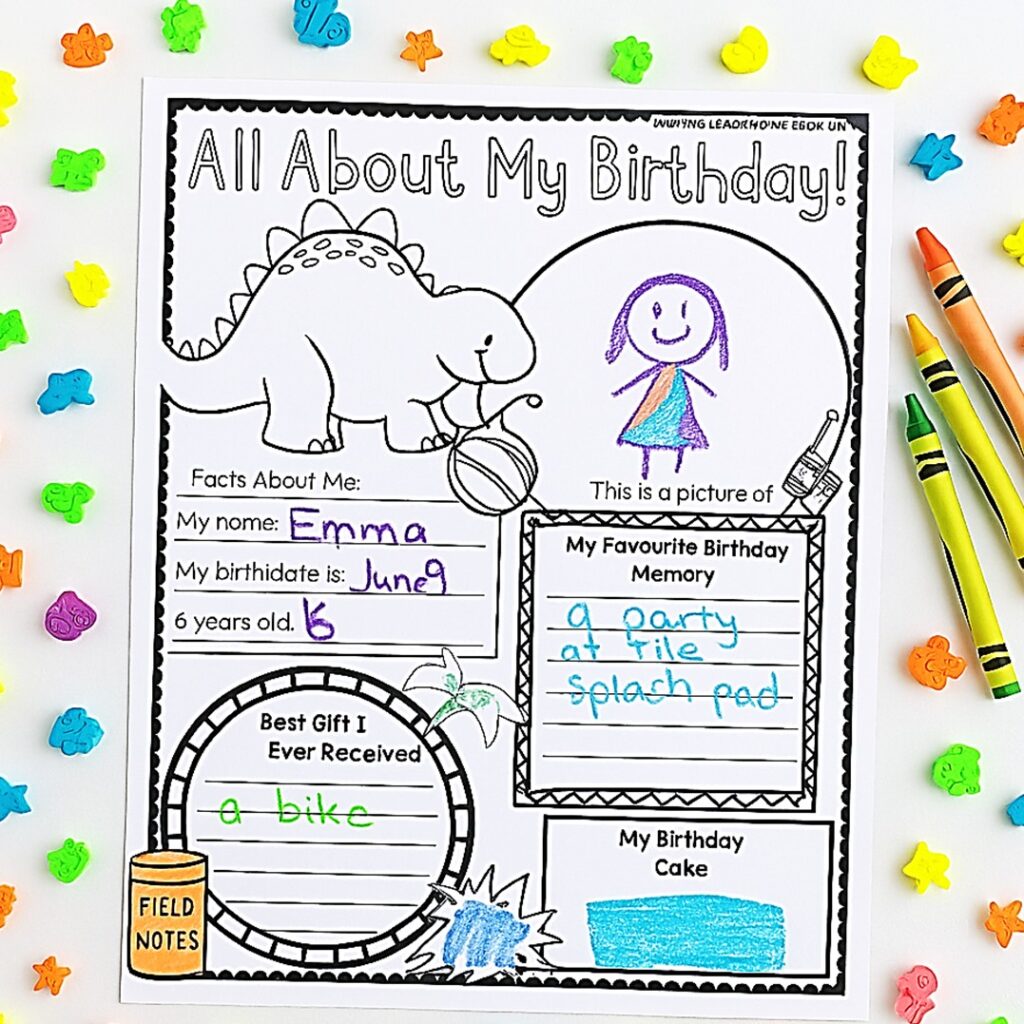 All About My Birthday!
Facts About Me:
My name: Emma
My birthidate is: June9
6 years old. 6
This is a picture of
My Favourite Birthday
Memory
a party
at Tile
splash pad
Best Gift I
Ever Received
a bike
My Birthday
Cake
FIELD
NOTES